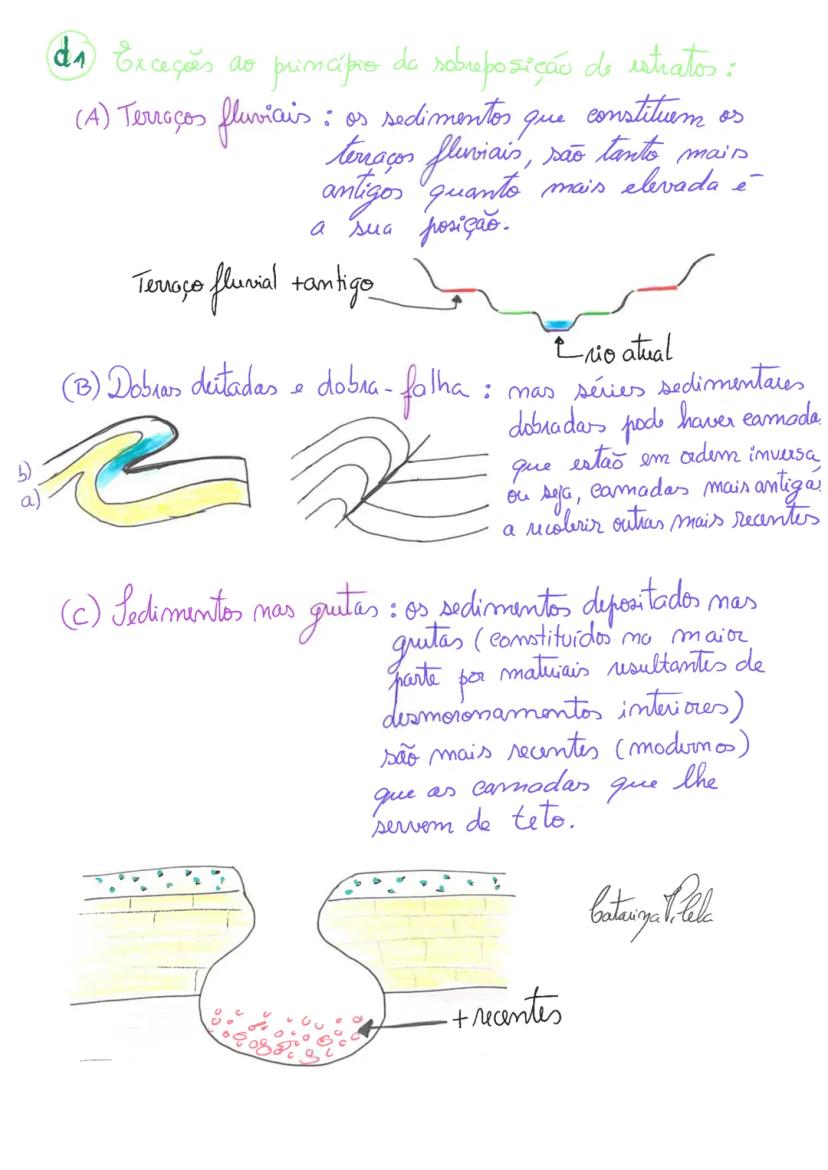 d1 Exceções ao princípio da sobreposição de estratos:
(A) Terraços fluviais: os sedimentos que constituem os
terraços fluviais, são tanto mais
antigos quanto mais elevada é
a sua posição.
Terraço fluvial +antigo
rio atual
(B) Dobras deitadas e dobra-falha: nas séries sedimentares
dobradas pode haver camada
que estão em ordem inversa
ou seja, camadas mais antiga
a recobrir outras mais recentes
b)
a)
(C) Sedimentos nas grutas: os sedimentos depositados nas
grutas (constituídos na maior
parte por materiais resultantes de
desmoronamentos interiores)
são mais recentes (modernos)
que as camadas que lhe
servem de teto.
Catarina Pilela
+ recentes